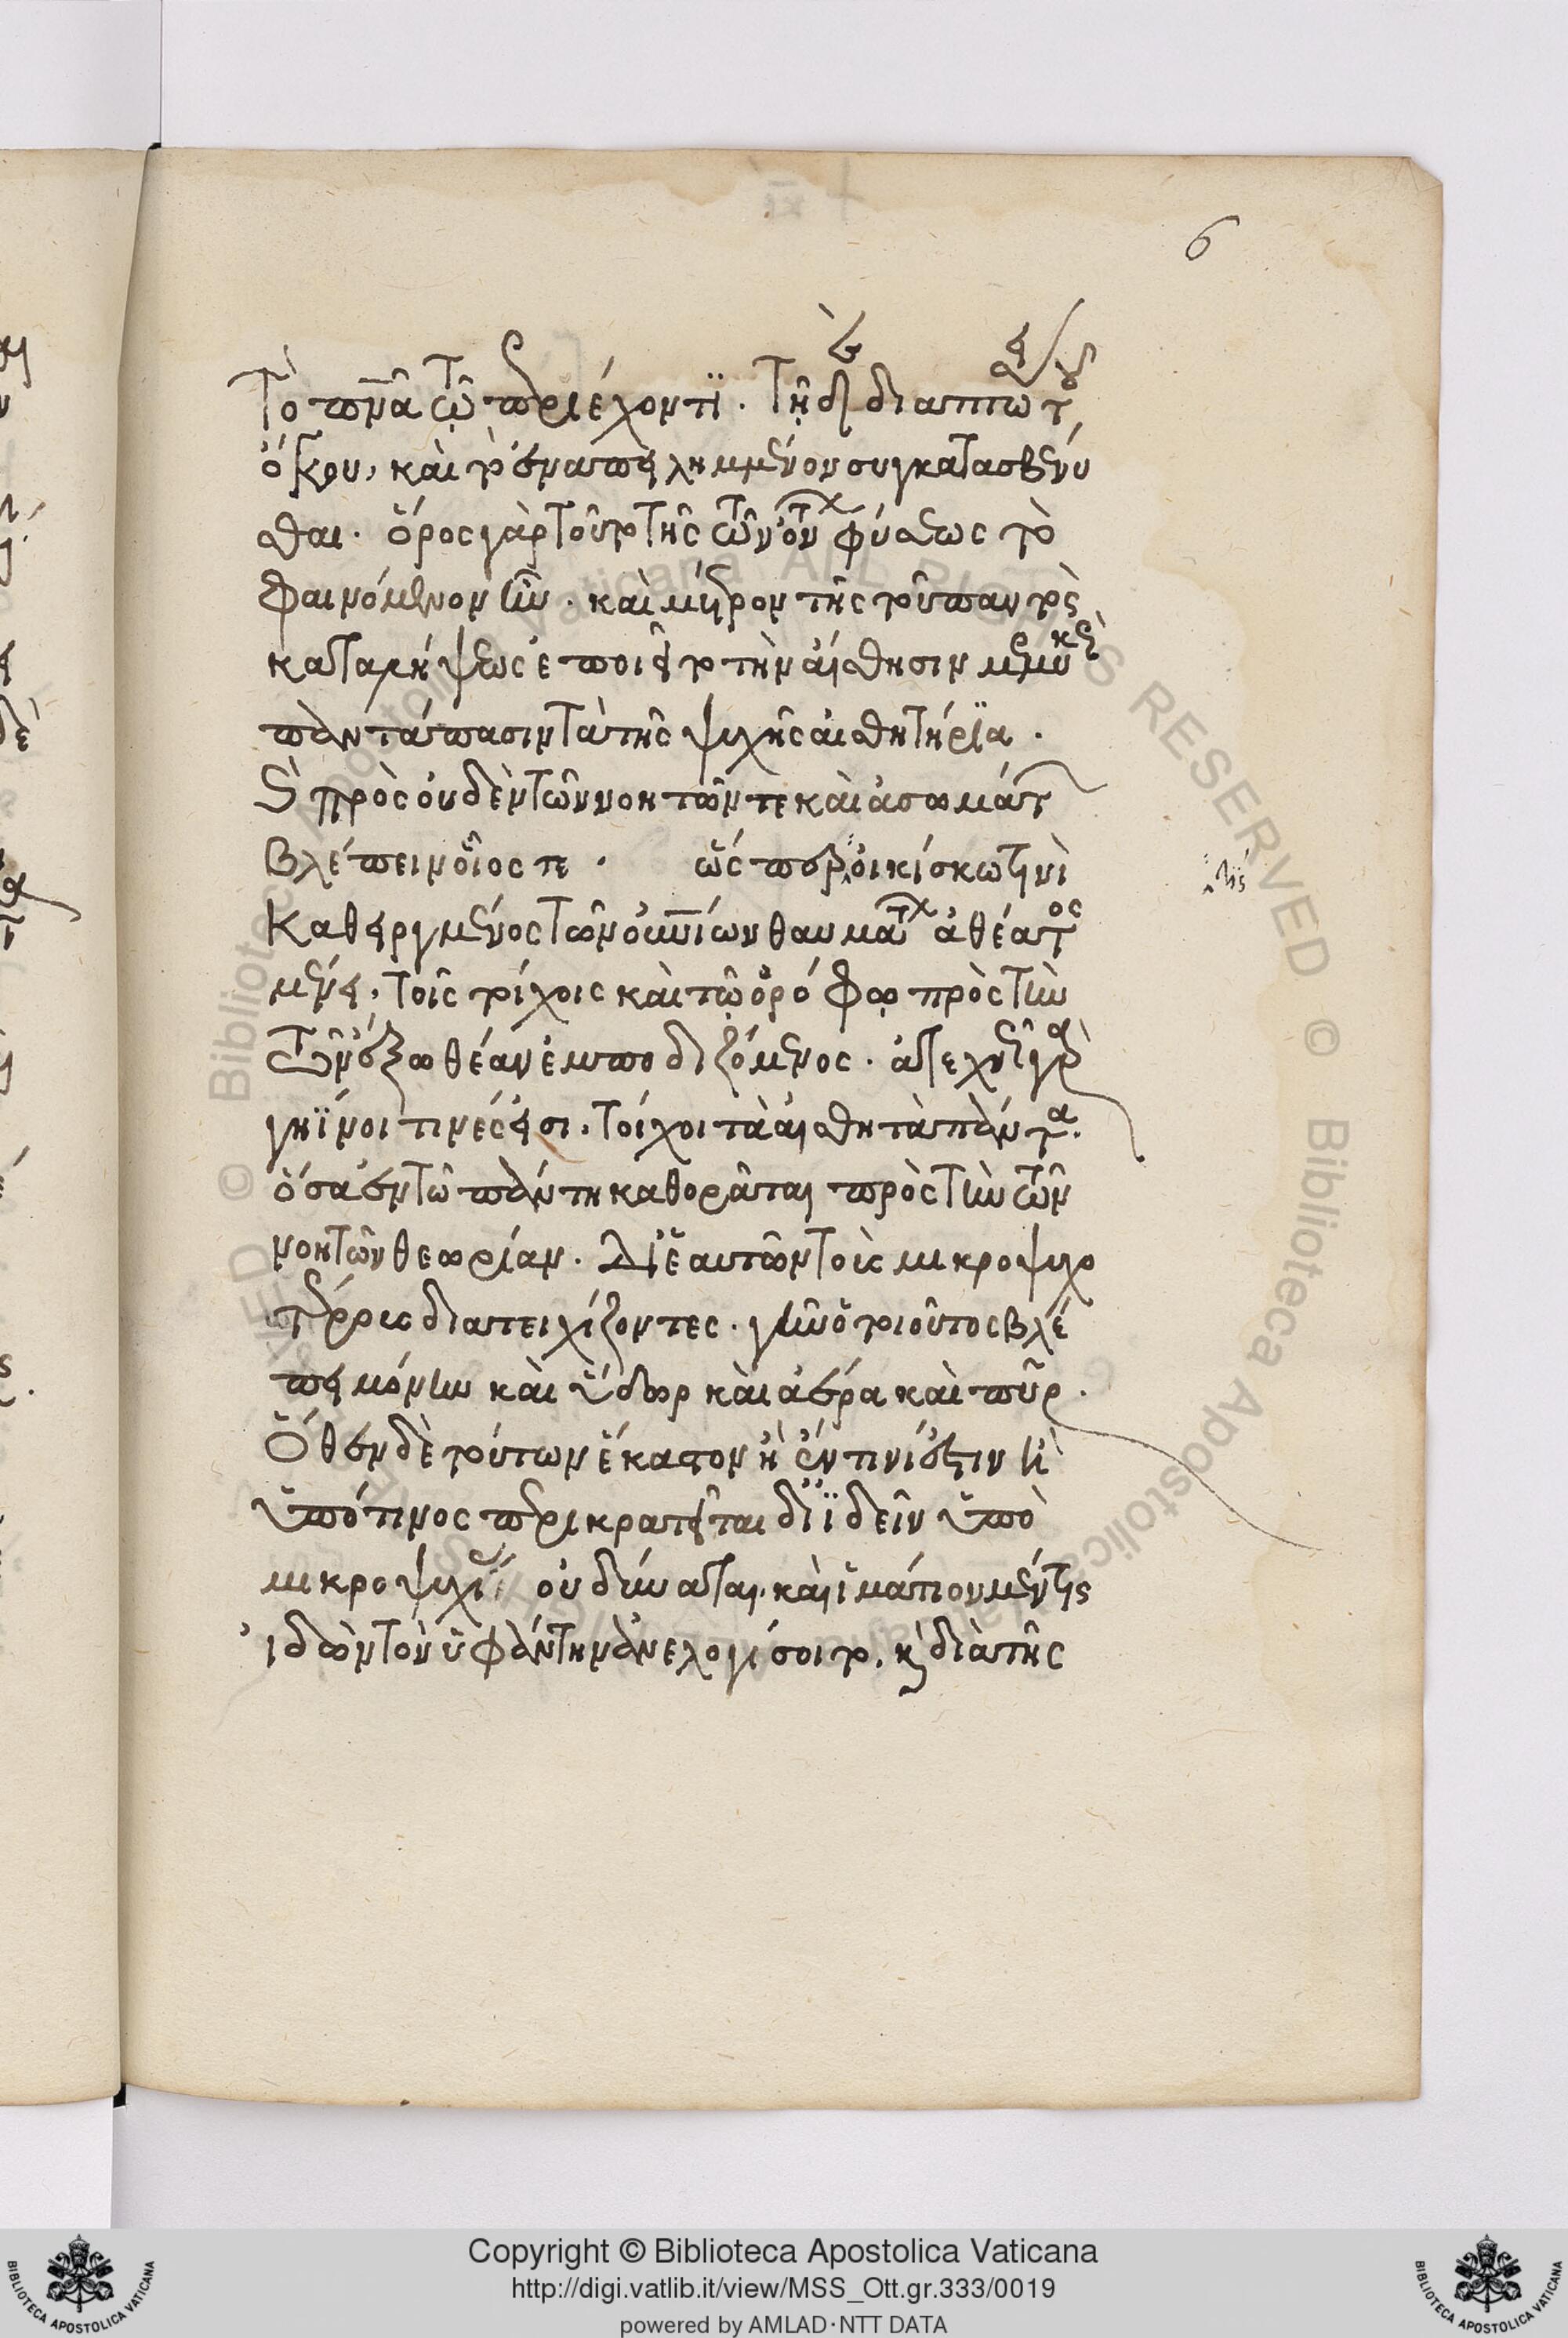 6
Τὸ πνᾶ τῷ περιέχοντϊ. Τῇ δὲ διαπτώσει τοῦ
ὄγκου, καὶ τὸ ἐναπειλημμένον συγκατασβένυ
σθαι. ὅρος γὰρ τούτο τῆς τῶν ὄντων φύσεως τὸ
φαινόμενον ἦν. καὶ μέτρον τῆς τοῦ παντὸς
καταλήψεως ἐποιεῖτο τὴν αἴσθησιν μεμυκὼς
παντάπασιν τὰ τῆς ψυχῆς αἰσθητήρϊα.
καὶ πρὸς οὐδὲν τῶν νοητῶν τε καὶ ἀσωμάτων
βλέπειν οἷος τε. ὥς περ οἰκίσκω τινὶ
Καθειργμένος τῶν οὐνίων θαυμάτων ἀθέατος
μένει, τοῖς τοίχοις καὶ τῷ ὀρόφῳ πρὸς τὴν
τῶν ἔξω θέαν ἐμποδιζόμενος. ἀτεχνῶς γὰρ
γηϊνοι τινές εἰσι, τοίχοι τὰ αἰσθητὰ πάντα.
ὅσα ἐν τῶ πάντη καθορᾶται πρὸς τὴν τῶν
νοητῶν θεωρίαν. Δι ἑαυτῶν τοὺς μικροψυχο
τέρους διατειχίζοντες. γῆν ὁ τοιοῦτος βλέ
πει μόνην καὶ ὕδωρ καὶ ἀέρα καὶ πῦρ.
Ὅθεν δὲ τούτων ἕκαστον ἢ ἐν τινί ἐστιν ἢ
ὑπό τινος περικρατεῖται διϊδεῖν ὑπὸ
μικροψυχίας οὐ δύναται. καὶ ἱμάτιον μέν τις
ἰδὼν τὸν ὑφάντην ἀνελογίσοιτο, καὶ διὰ τῆς